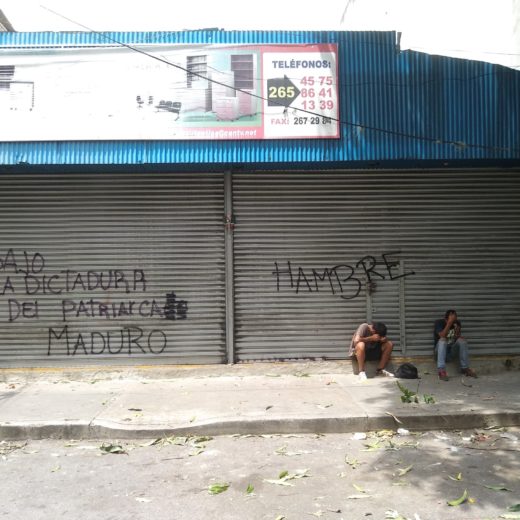 TELÉFONOS:
265
45 75
86 41
13 39
FAX: 267 29 84
AJO
A DICTADURA
DEL PATRIARCA
MADURO
HAMBRE